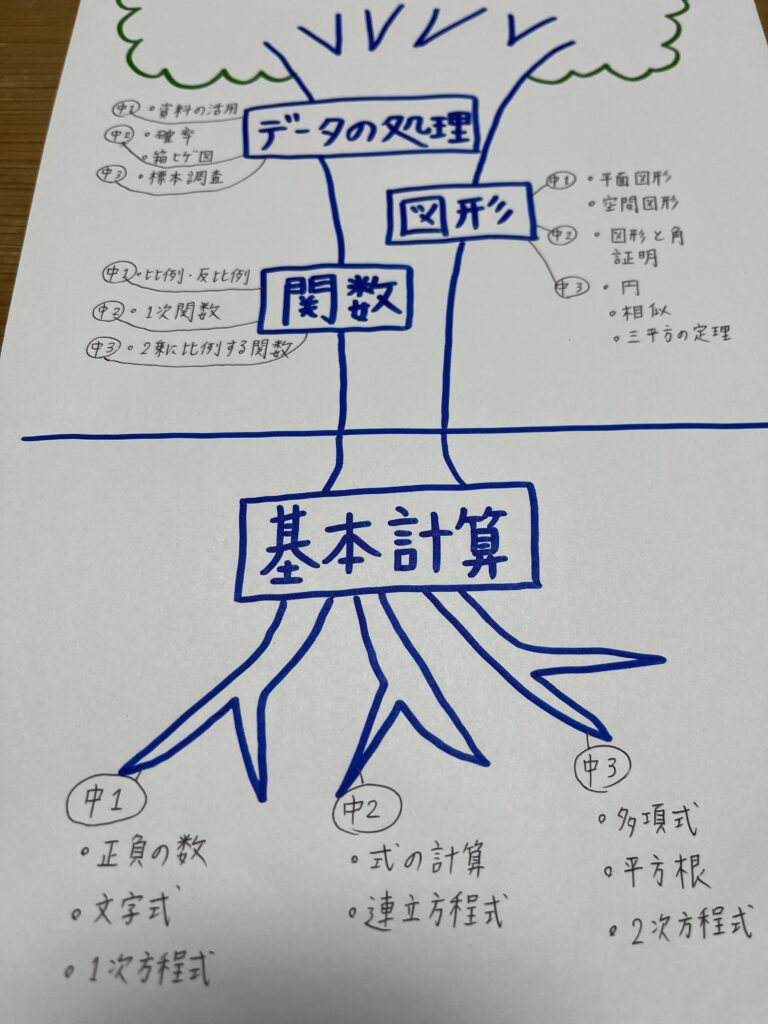 データの処理
中1 • 資料の活用
中2 • 確率
• 箱ヒゲ図
中3 • 標本調査
図形
中1 • 平面図形
• 空間図形
中2 • 図形と角
証明
中3 • 円
• 相似
• 三平方の定理
関数
中1 • 比例・反比例
中2 • 1次関数
中3 • 2乗に比例する関数
基本計算
中1
• 正負の数
• 文字式
• 1次方程式
中2
• 式の計算
• 連立方程式
中3
• 多項式
• 平方根
• 2次方程式